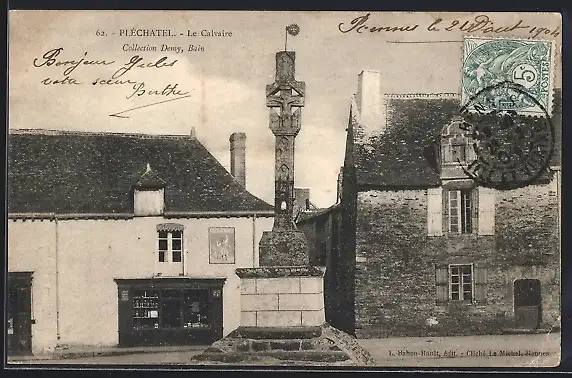 62. - PLÉCHATEL. - Le Calvaire
Collection Demy, Bain
Rennes le 21 Août 1904
Bonjour Jules
votre sœur Berthe
5c
L. Bahon-Rault, édit. - Cliché La Michel, Rennes